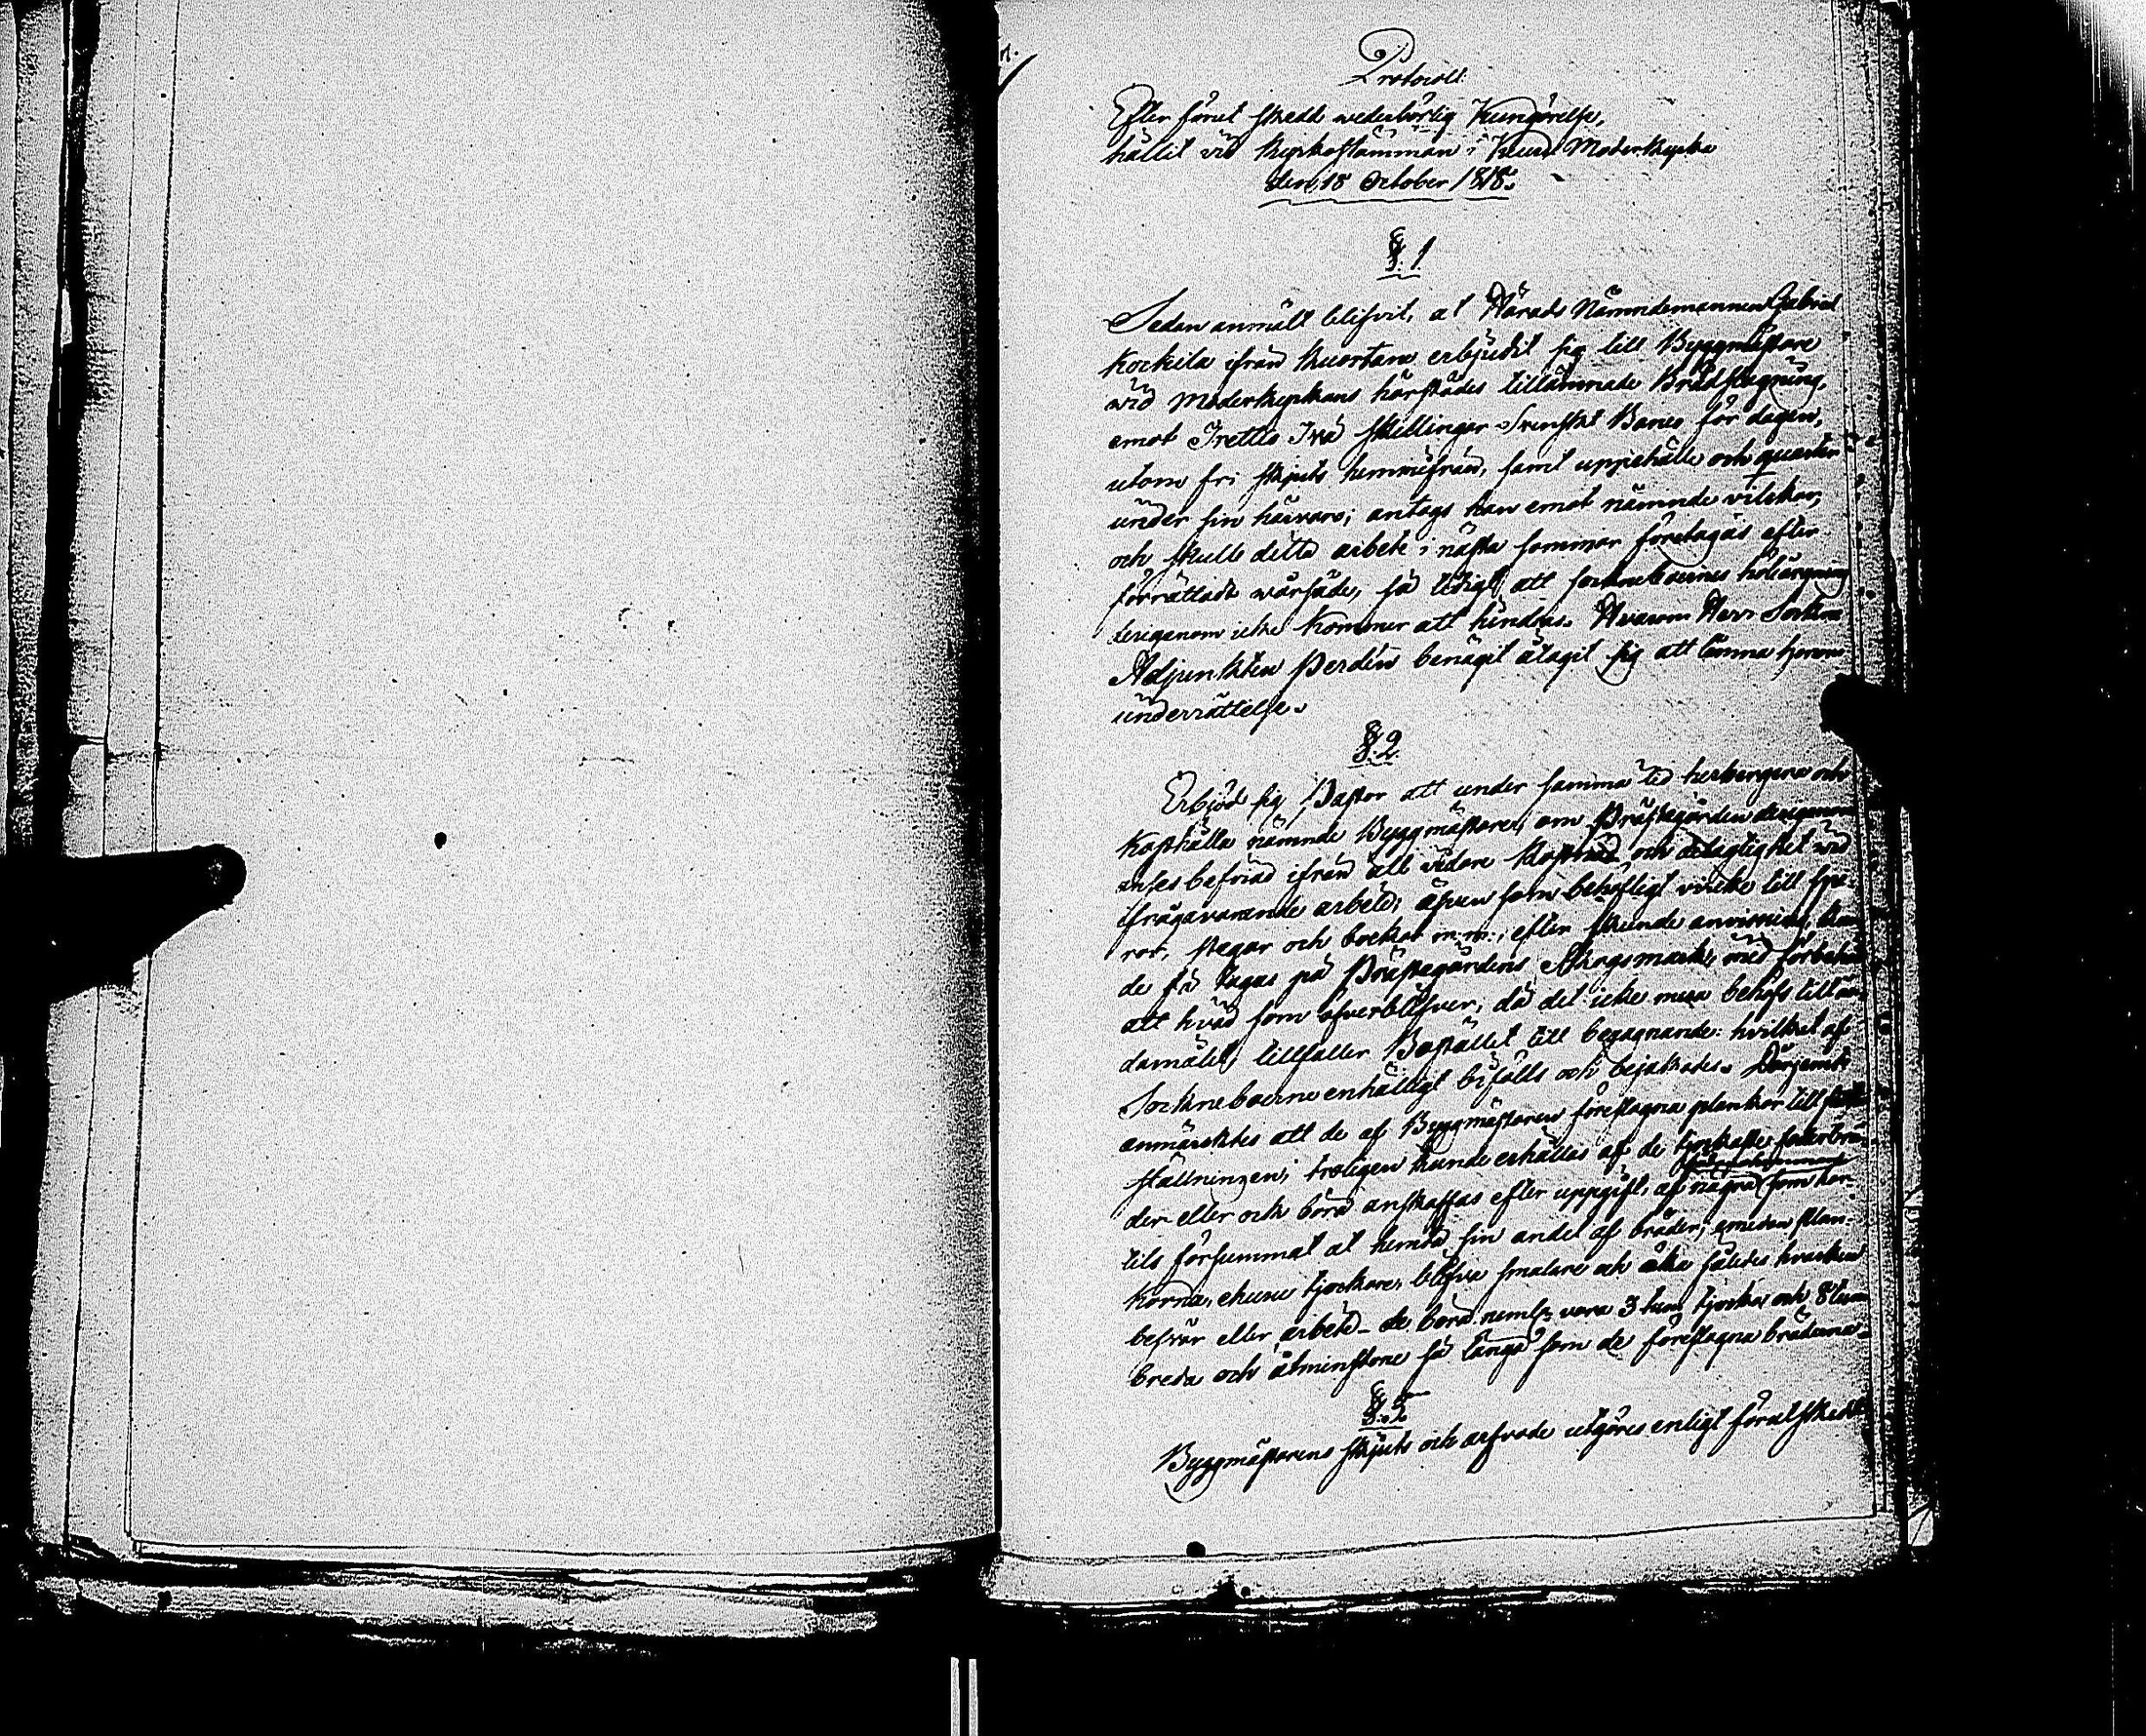 Protocoll
Efter förut skedd wederbörlig Kungörelse,
hållit vid Kyrkostämman i Ruovesi Moderkyrka
den 18 October 1818.
§. 1
Sedan anmält blifvit, at Härads Nämndemannen Gabriel
Kockila ifrån Kuortane erbjudit sig till Byggmästare
wid Moderkyrkans härstädes tillämnade Brädslagning,
emot Trettio Två skillingar Svenskt Banco för dagen,
utom fri skjuts hemmifrån, samt uppehälle och quarter
under sin härvaro; antogs han emot nämnde vilckor,
och skulle detta arbete i nästa sommar företagas efter
förrättadt wårsäde, så tidigt att sockneboernes höbärgning
derigenom icke kommer att hindras. Hvarom Herr Sockne
Adjunkten Perdén benägit åtagit sig att lämna honom
underrättelse.
§. 2
Erbjöd sig Pastor att under samma tid herbergera och
kosthålla nämnde Byggmästare, om Prästegården derigenom
anses befriad ifrån all vidare kostnad och delagtighet vid
ifrågavarande arbete; äfven som behöfligt virke till spi-
ror, stegar och bockar m.m.; efter skeende anvisning, kun-
de få tagas på Prästegårdens Skogsmark, med förbehåll
att hvad som öfverblifver, då det icke mera behöfs till än-
damålet, tillfaller Bostället till begagnande: hvilket af
Sockneboerne enhälligt bifölls och bejakades. Därjemte
anmärcktes att de af Byggmästaren föreslagna plankor till
ställningen, troligen kunde erhållas af de tjockaste foderbrä-
der eller ock böra anskaffas efter uppgift, af några som här-
tils försummat at hemta sin andel af bräder; emedan plan-
korna, ehuru tjockare, blifva smalare och öka således hvarken
besvär eller arbete - de böra neml. vara 3 tum tjocka och 8 tum
breda och åtminstone så långa som de föreslagna bräderna.
§. 3.
Byggmästarens skjuts och arfvode utgöres enligt förut skedd